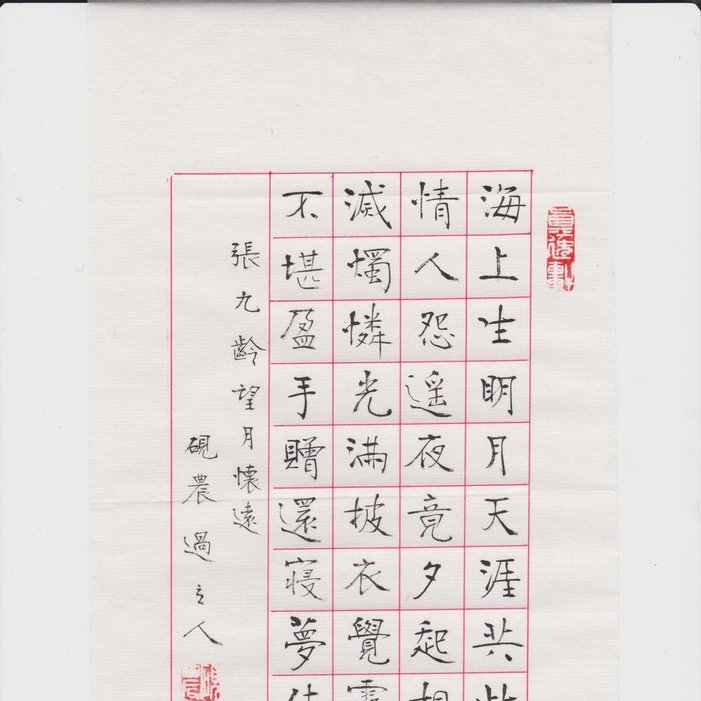 海上生明月天涯共此
情人怨遥夜竟夕起相
滅燭憐光滿披衣覺露
不堪盈手贈還寢夢佳
張九齡望月懷遠
硯農過立人